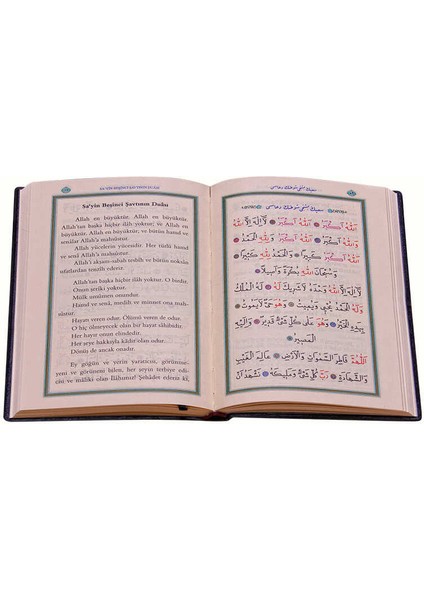 SA'YİN BEŞİNCİ ŞAVTININ DUASI
Sa'yin Beşinci Şavtının Duâsı
Allah en büyüktür. Allah en büyüktür.
Allah'tan başka hiçbir ilâh yoktur; ve Allah en
büyüktür. Allah en büyüktür, ve bütün hamd ve
senâlar Allah'a mahsustur.
Allah yücelerin yücesidir. Her türlü hamd
ve senâ Allah'a mahsustur.
Allah'ı akşam-sabah tesbih ve bütün noksan
sıfatlardan tenzih ederiz.
Allah'tan başka hiçbir ilâh yoktur. O birdir.
Onun şeriki yoktur.
Mülk umûmen onundur.
Hamd ve senâ, medih ve minnet ona mah-
sustur.
Hayatı veren odur. Ölümü veren de odur.
O hiç ölmeyecek olan bir hayat sâhibidir.
Her hayır onun elindedir.
Her şeye hakkıyla kâdir olan odur.
Dönüş de ancak onadır.
Ey göğün ve yerin yaratıcısı, görünme-
yeni ve görüneni bilen, her şeyin terbiye edi-
cisi ve mâliki olan İlâhımız! Şehâdet ederiz ki,
اَللّٰهُ اَكْبَرُ اَللّٰهُ اَكْبَرُ لَا اِلٰهَ اِلَّا اللّٰهُ
وَاللّٰهُ اَكْبَرُ اَللّٰهُ اَكْبَرُ وَلِلّٰهِ الْحَمْدُ
اَللّٰهُ اَكْبَرُ كَبِيرًا وَالْحَمْدُ لِلّٰهِ كَثِيرًا
وَسُبْحَانَ اللّٰهِ بُكْرَةً وَاَصِيلًا
لَا اِلٰهَ اِلَّا اللّٰهُ وَحْدَهُ لَا شَرِيكَ لَهُ لَهُ الْمُلْكُ
وَلَهُ الْحَمْدُ يُحْيِي وَيُمِيتُ وَهُوَ حَيٌّ لَا يَمُوتُ
بِيَدِهِ الْخَيْرُ وَهُوَ عَلٰى كُلِّ شَيْءٍ قَدِيرٌ وَاِلَيْهِ
الْمَصِيرُ
اَللّٰهُمَّ فَاطِرَ السَّمٰوَاتِ وَالْاَرْضِ عَالِمَ الْغَيْبِ
وَالشَّهَادَةِ رَبَّ كُلِّ شَيْءٍ وَمَلِيكَهُ نَشْهَدُ اَنْ